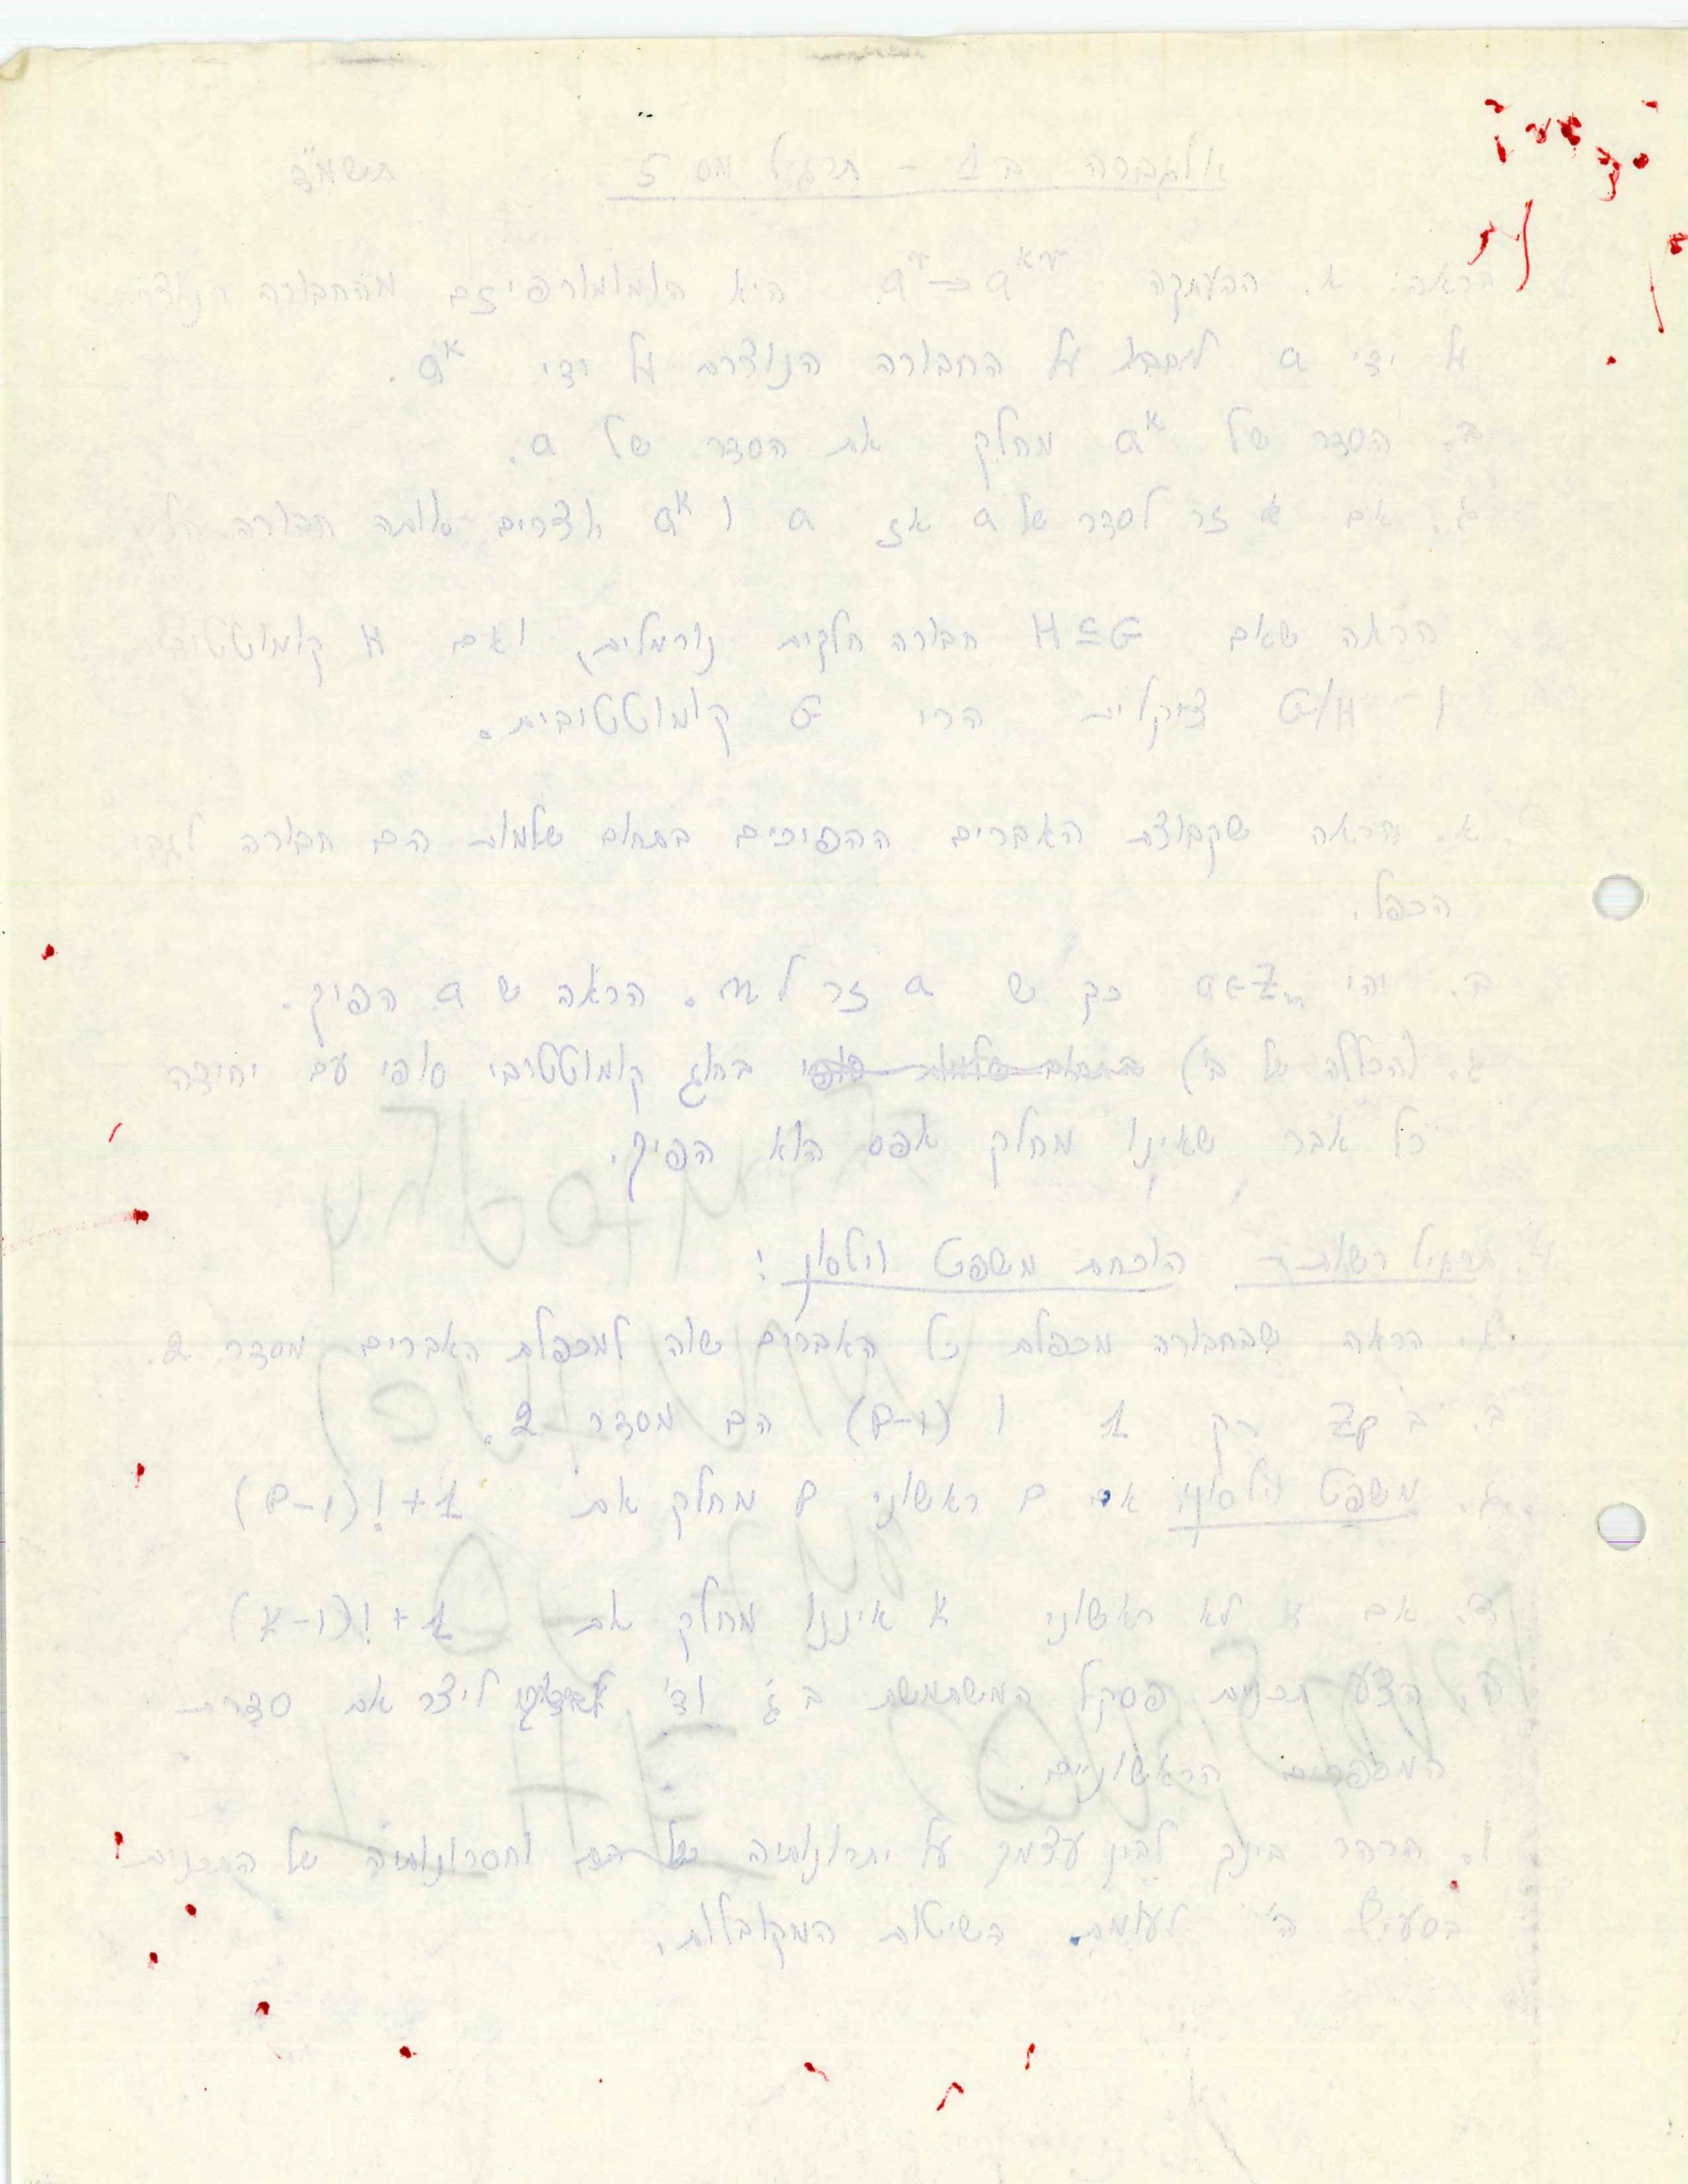 אלגברה ב 1 - תרגיל מס 5 תשמ"ד
הראה: א. העתקה היא הומומורפיזם מהחבורה הנוצרת
על ידי a על החבורה הנוצרת על ידי aᵏ.
ב. הסדר של aᵏ מחלק את הסדר של a.
ג. אם k זר לסדר של a אז a ו aᵏ יוצרים אותה חבורה
הראה שאם H≤G חבורה חלקית נורמלית, ואם H קומוטטיבית
ו G/H ציקלית הרי G קומוטטיבית.
א. הראה שקבוצת האברים ההפיכים בתחום שלמות הם חבורה לגבי
הכפל.
ב. יהי a∈Zₘ כך ש a זר ל m. הראה ש a הפיך.
ג. (הכללה של ב) בחוג קומוטטיבי סופי עם יחידה
כל אבר שאינו מחלק אפס הוא הפיך.
4. תרגיל רשות - הוכחת משפט וילסון:
א. הראה שבחבורה מכפלת כל האברים שוה למכפלת האברים מסדר 2.
ב. ב Zp רק 1 ו (p-1) הם מסדר 2.
ג. משפט וילסון: אם p ראשוני p מחלק את (p-1)!+1
ד. אם k לא ראשוני k איננו מחלק את (k-1)!+1
ה. הצע תכנית פסקל המשתמשת ב ג' וד' ליצר את סדרת
המספרים הראשוניים.
ו. הרהר בינך לבין עצמך על יתרונותיה וחסרונותיה של התכנית
בסעיף ה' לעומת השיטות המקובלות.